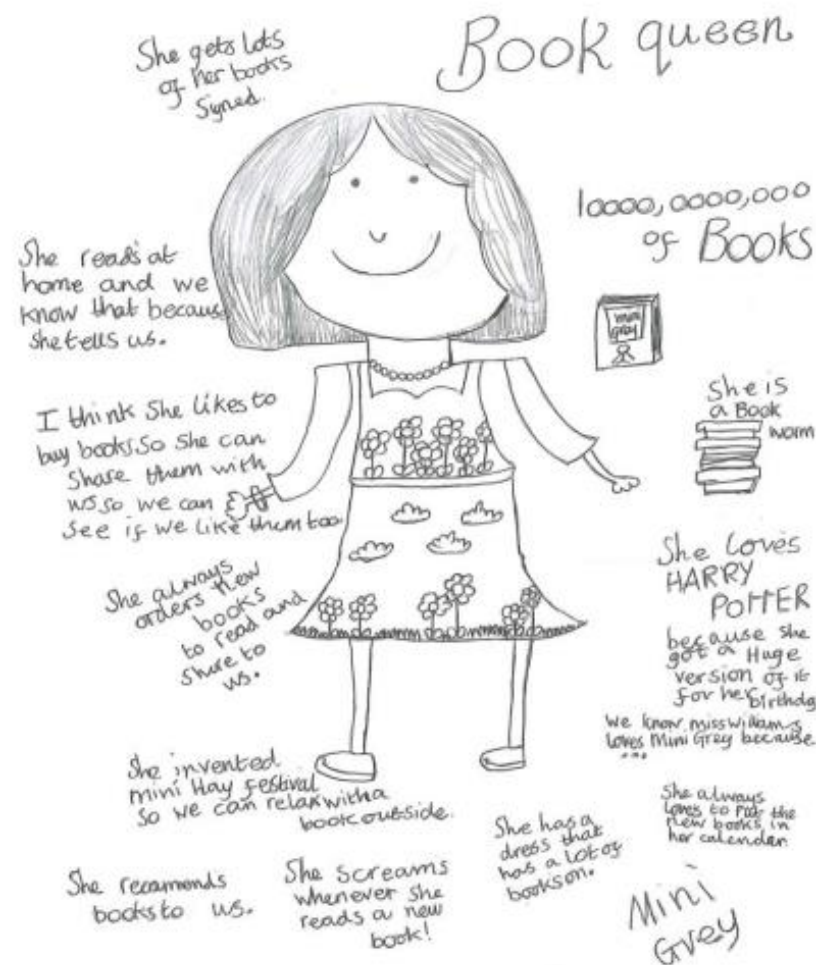 Book queen
She gets lots
of her books
Signed.
10000,0000,000
of Books
She reads at
home and we
know that because
she tells us.
mini
grey
She is
a Book
worm
I think She likes to
buy books So she can
Share them with
us so we can
see if we like them too
She always
orders new
books
to read and
share to
us.
She loves
HARRY
POTTER
because she
got a Huge
version of it
for her birthda
we know miss williams
loves Mini Grey because
...
She invented
mini Hay festival
so we can relax with a
book outside.
She always
loves to put the
new books in
her calender.
She has a
dress that
has a lot of
books on.
She recomends
books to us.
She screams
whenever she
reads a new
book!
Mini
Grey